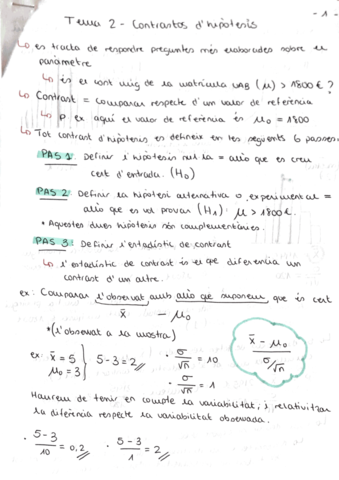 - 1 -
Tema 2 - Contrastos d'hipòtesis
↳ es tracta de respondre preguntes més elaborades sobre el
paràmetre
↳ és el cost mig de la matrícula UAB (μ) > 1800 € ?
↳ Contrast = comparar respecte d'un valor de referència
↳ p. ex aquí el valor de referència és μ₀ = 1800
↳ Tot contrast d'hipòtesis es defineix en les següents 6 passes.
PAS 1: Definir l'hipòtesis nul·la = allò que es creu
cert d'entrada. (H₀)
PAS 2: Definir la hipòtesi alternativa o experimental =
allò que es vol provar (H₁): μ > 1800 €.
• Aquestes dues hipòtesis són complementàries.
PAS 3: Definir l'estadístic de contrast
↳ l'estadístic de contrast és el que diferencia un
contrast d'un altre.
ex: Comparar l'observat amb allò que suposem que és cert
x̄ - μ₀
*(l'observat a la mostra)
ex: x̄ = 5
μ₀ = 3 } 5-3 = 2
• σ/√n = 10
• σ/√n = 1
x̄ - μ₀ / σ/√n
Haurem de tenir en compte la variabilitat, i relativitzar
la diferència respecte la variabilitat observada.
• 5-3/10 = 0,2 • 5-3/1 = 2